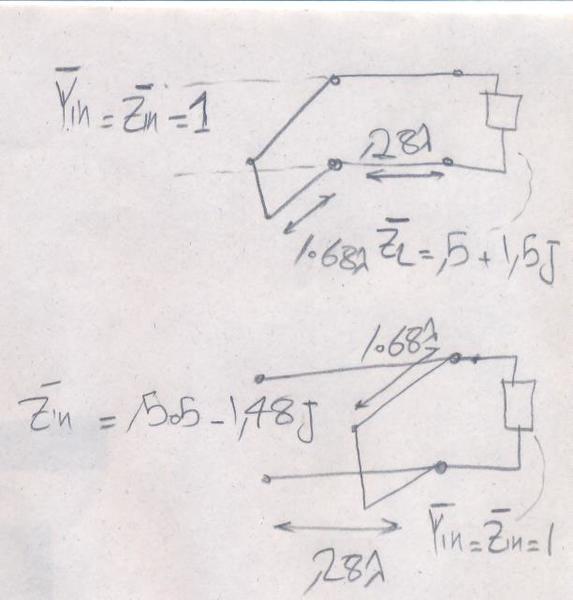 Y̅in = Z̅in = 1
,28λ
1.68λ
Z̅L = ,5 + 1,5J
1.68λ
Z̅in = ,505 - 1,48J
,28λ
Y̅in = Z̅in = 1